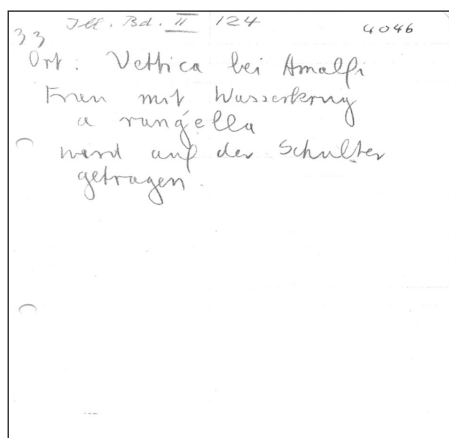 Ill. Bd. II 124
4046
33
Ort: Vettica bei Amalfi
Frau mit Wasserkrug
a rungella
wird auf der Schulter
getragen.